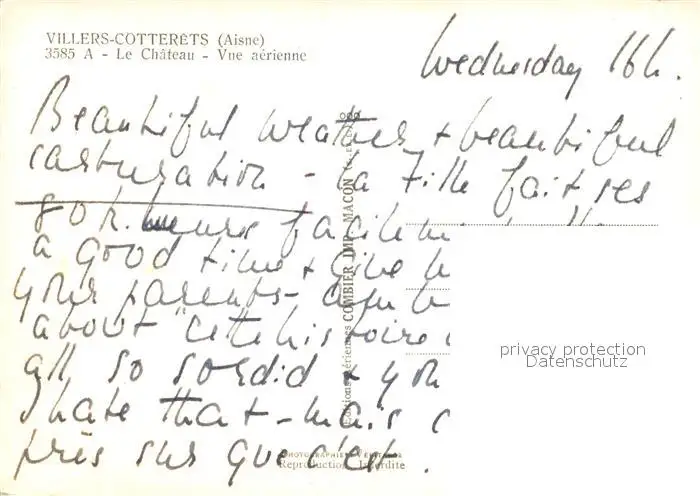 VILLERS-COTTERÊTS (Aisne)
3585 A - Le Château - Vue aérienne
Wednesday 16h.
Beautiful weather + beautiful
- la fille fait ses
facilem
a good time + give
your parents -
about "cette histoire
all so sordid + you
hate that - mais
près sur que c'est
Editions aériennes COMBIER IMP. MACON
PHOTOGRAPHIE VÉRITABLE
Reproduction Interdite
privacy protection
Datenschutz